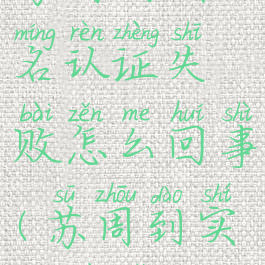 míng rèn zhèng shī
名认证失
bài zěn me huí shì
败怎么回事
sū zhōu dào shí
(苏周到实